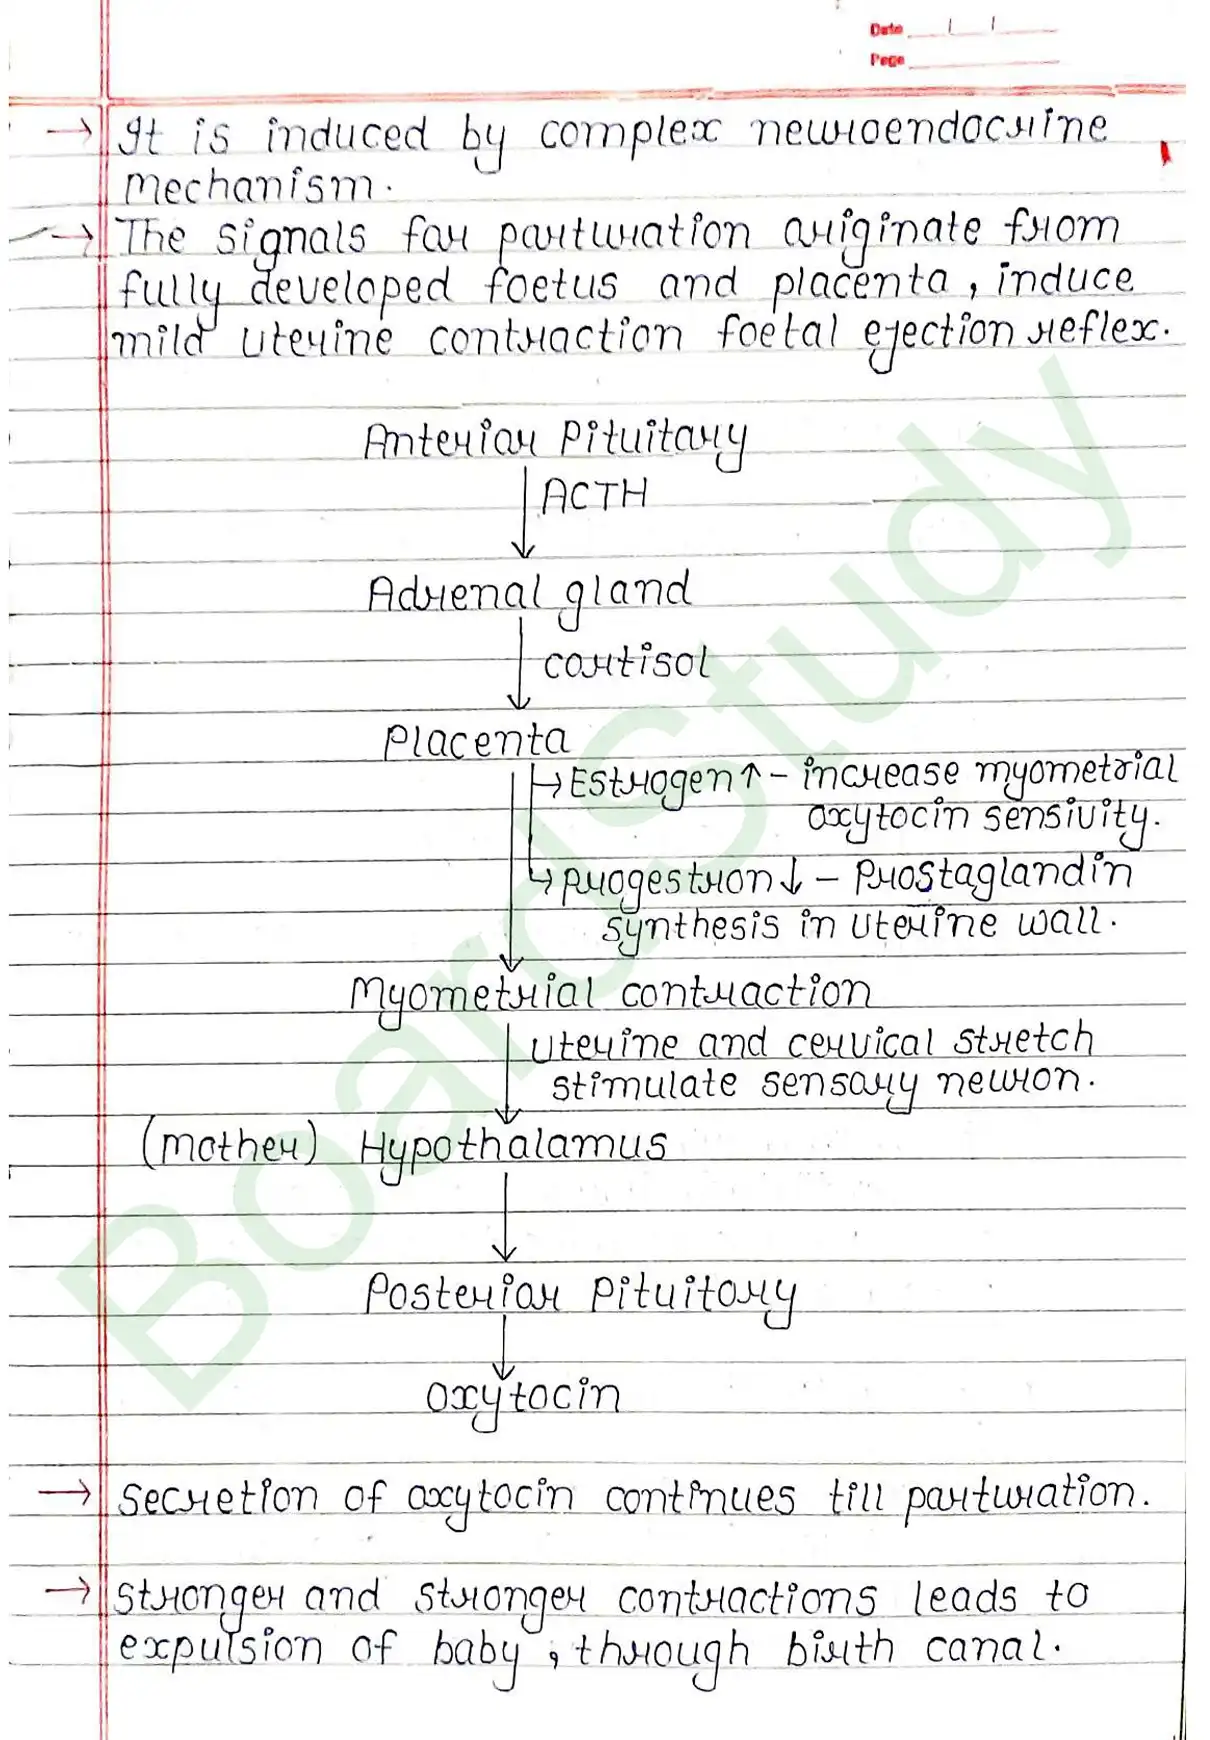 Date
Page
→ It is induced by complex neuroendocrine
mechanism.
→ The signals for parturation originate from
fully developed foetus and placenta, induce
mild uterine contraction foetal ejection reflex.
Anterior Pituitary
ACTH
Adrenal gland
cortisol
Placenta
→ Estrogen ↑ - increase myometrial
oxytocin sensivity.
→ progestron ↓ - Prostaglandin
synthesis in uterine wall.
Myometrial contraction
uterine and cervical stretch
stimulate sensory neuron.
(mother) Hypothalamus
Posterior Pituitory
oxytocin
→ secretion of oxytocin continues till parturation.
→ stronger and stronger contractions leads to
expulsion of baby, through birth canal.
BoardStudy